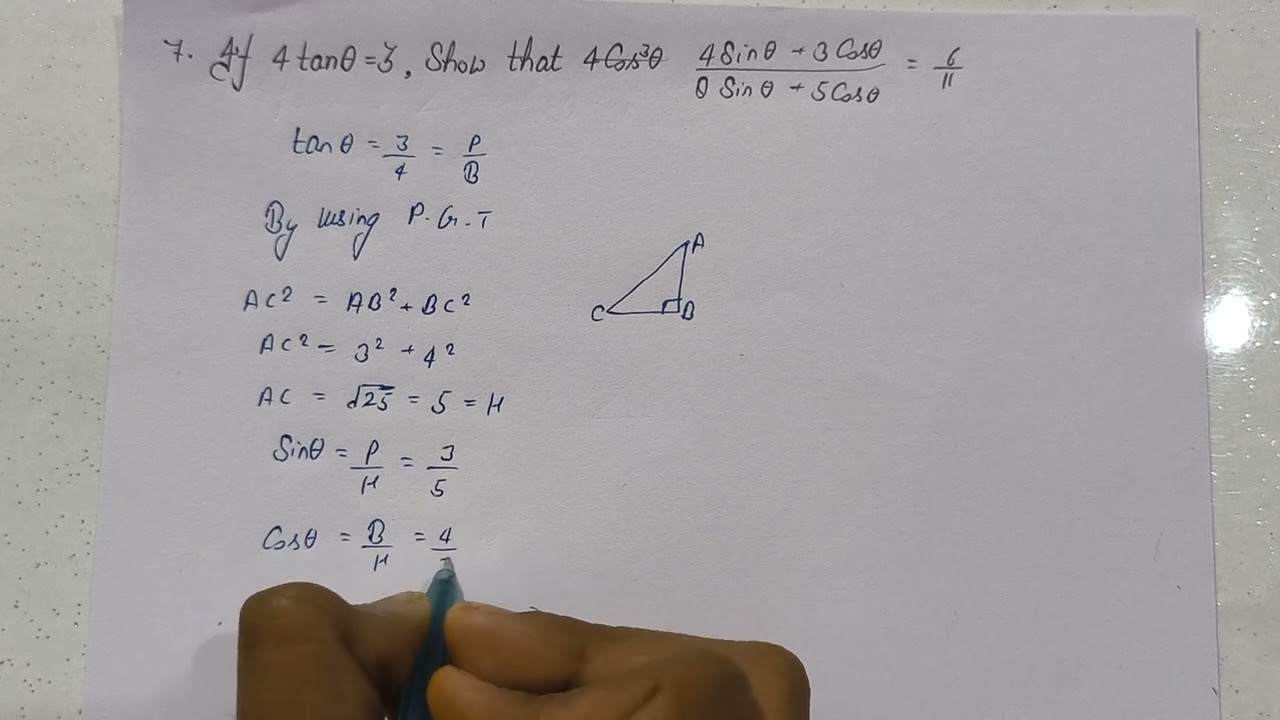 7. If 4 tanθ = 3, Show that 4 Sinθ + 3 Cosθ / 8 Sinθ + 5 Cosθ = 6/11
tanθ = 3/4 = P/B
By using P.G.T
AC² = AB² + BC²
AC² = 3² + 4²
AC = √25 = 5 = H
Sinθ = P/H = 3/5
Cosθ = B/H = 4/
A
C
B